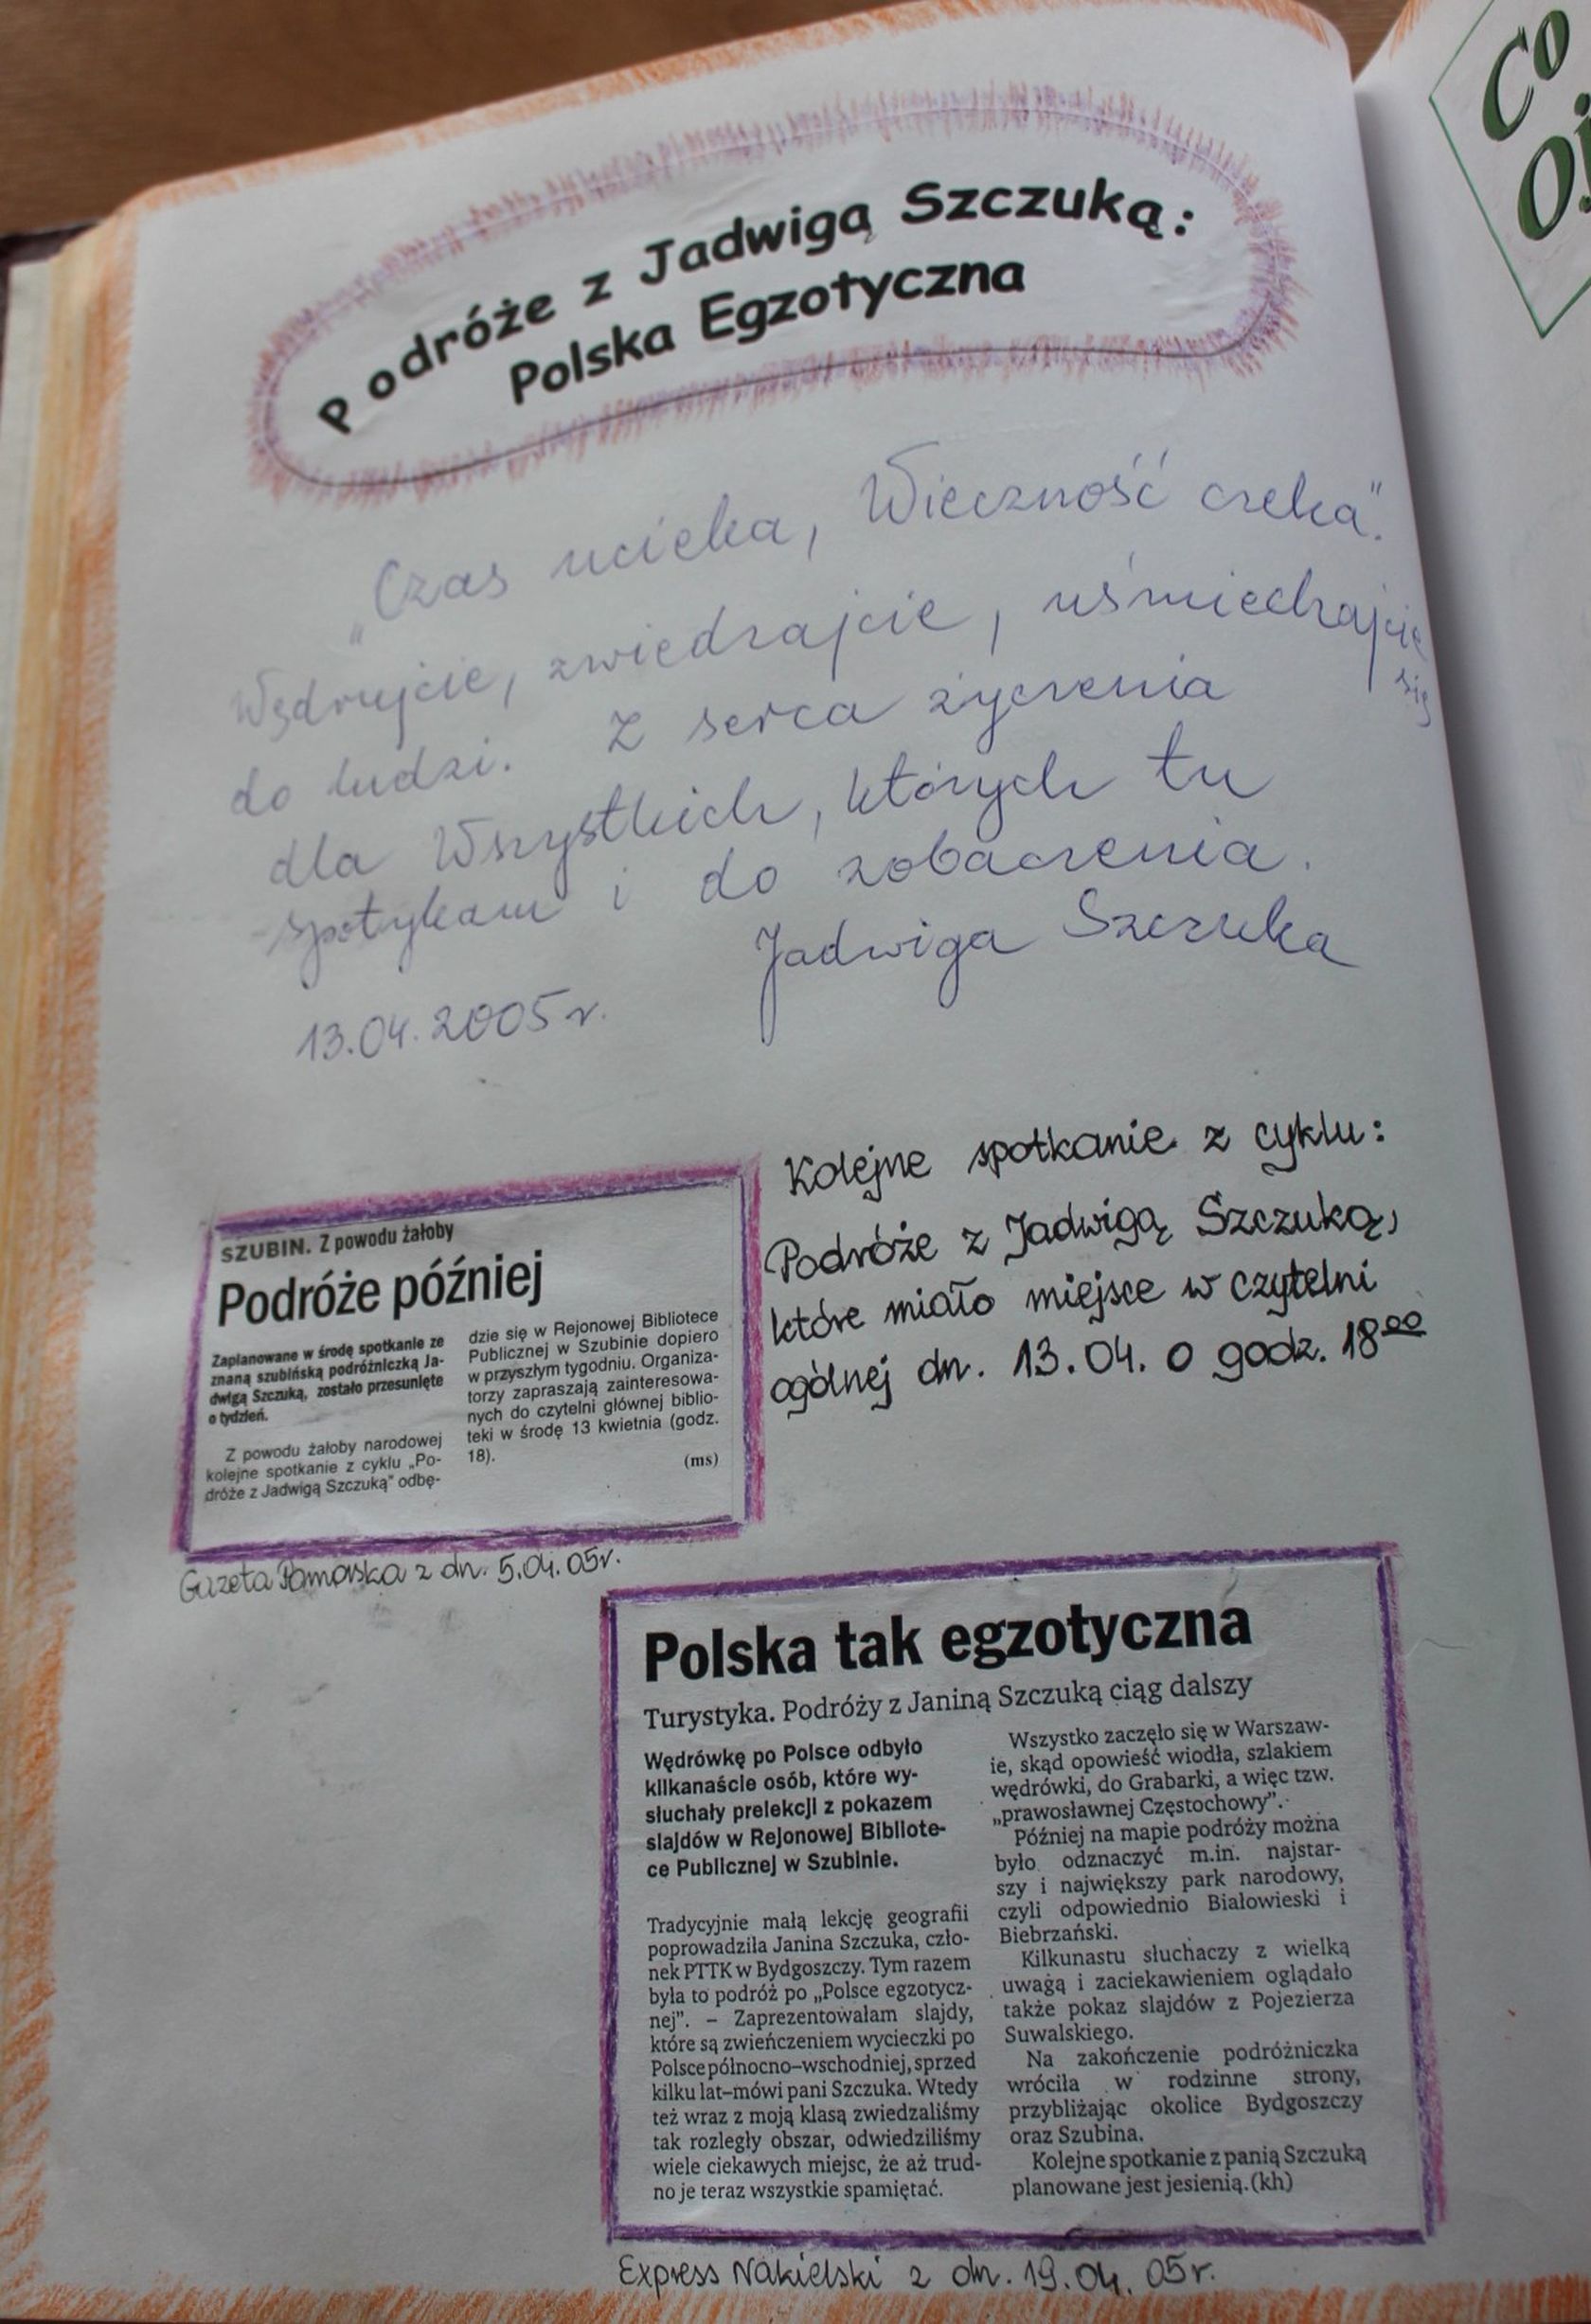 Podróże z Jadwigą Szczuką:
Polska Egzotyczna
„Czas ucieka, Wieczność czeka”.
Wędrujcie, zwiedzajcie, uśmiechajcie się
do ludzi. Z serca życzenia
dla Wszystkich, których tu
spotykam i do zobaczenia.
Jadwiga Szczuka
13.04.2005r.
Kolejne spotkanie z cyklu:
Podróże z Jadwigą Szczuką,
które miało miejsce w czytelni
ogólnej dn. 13.04. o godz. 18⁰⁰
SZUBIN. Z powodu żałoby
Podróże później
Zaplanowane w środę spotkanie ze
znaną szubińską podróżniczką Ja-
dwigą Szczuką, zostało przesunięte
o tydzień.
Z powodu żałoby narodowej
kolejne spotkanie z cyklu „Po-
dróże z Jadwigą Szczuką” odbę-
dzie się w Rejonowej Bibliotece
Publicznej w Szubinie dopiero
w przyszłym tygodniu. Organiza-
torzy zapraszają zainteresowa-
nych do czytelni głównej biblio-
teki w środę 13 kwietnia (godz.
18).
(ms)
Gazeta Pomorska z dn. 5.04.05r.
Polska tak egzotyczna
Turystyka. Podróży z Janiną Szczuką ciąg dalszy
Wędrówkę po Polsce odbyło
kilkanaście osób, które wy-
słuchały prelekcji z pokazem
slajdów w Rejonowej Bibliote-
ce Publicznej w Szubinie.
Tradycyjnie małą lekcję geografii
poprowadziła Janina Szczuka, czło-
nek PTTK w Bydgoszczy. Tym razem
była to podróż po „Polsce egzotycz-
nej”. – Zaprezentowałam slajdy,
które są zwieńczeniem wycieczki po
Polsce północno–wschodniej, sprzed
kilku lat–mówi pani Szczuka. Wtedy
też wraz z moją klasą zwiedzaliśmy
tak rozległy obszar, odwiedziliśmy
wiele ciekawych miejsc, że aż trud-
no je teraz wszystkie spamiętać.
Wszystko zaczęło się w Warszaw-
ie, skąd opowieść wiodła, szlakiem
wędrówki, do Grabarki, a więc tzw.
„prawosławnej Częstochowy”.
Później na mapie podróży można
było odznaczyć m.in. najstar-
szy i największy park narodowy,
czyli odpowiednio Białowieski i
Biebrzański.
Kilkunastu słuchaczy z wielką
uwagą i zaciekawieniem oglądało
także pokaz slajdów z Pojezierza
Suwalskiego.
Na zakończenie podróżniczka
wróciła w rodzinne strony,
przybliżając okolice Bydgoszczy
oraz Szubina.
Kolejne spotkanie z panią Szczuką
planowane jest jesienią.(kh)
Express Nakielski z dn. 19.04.05r.
Co